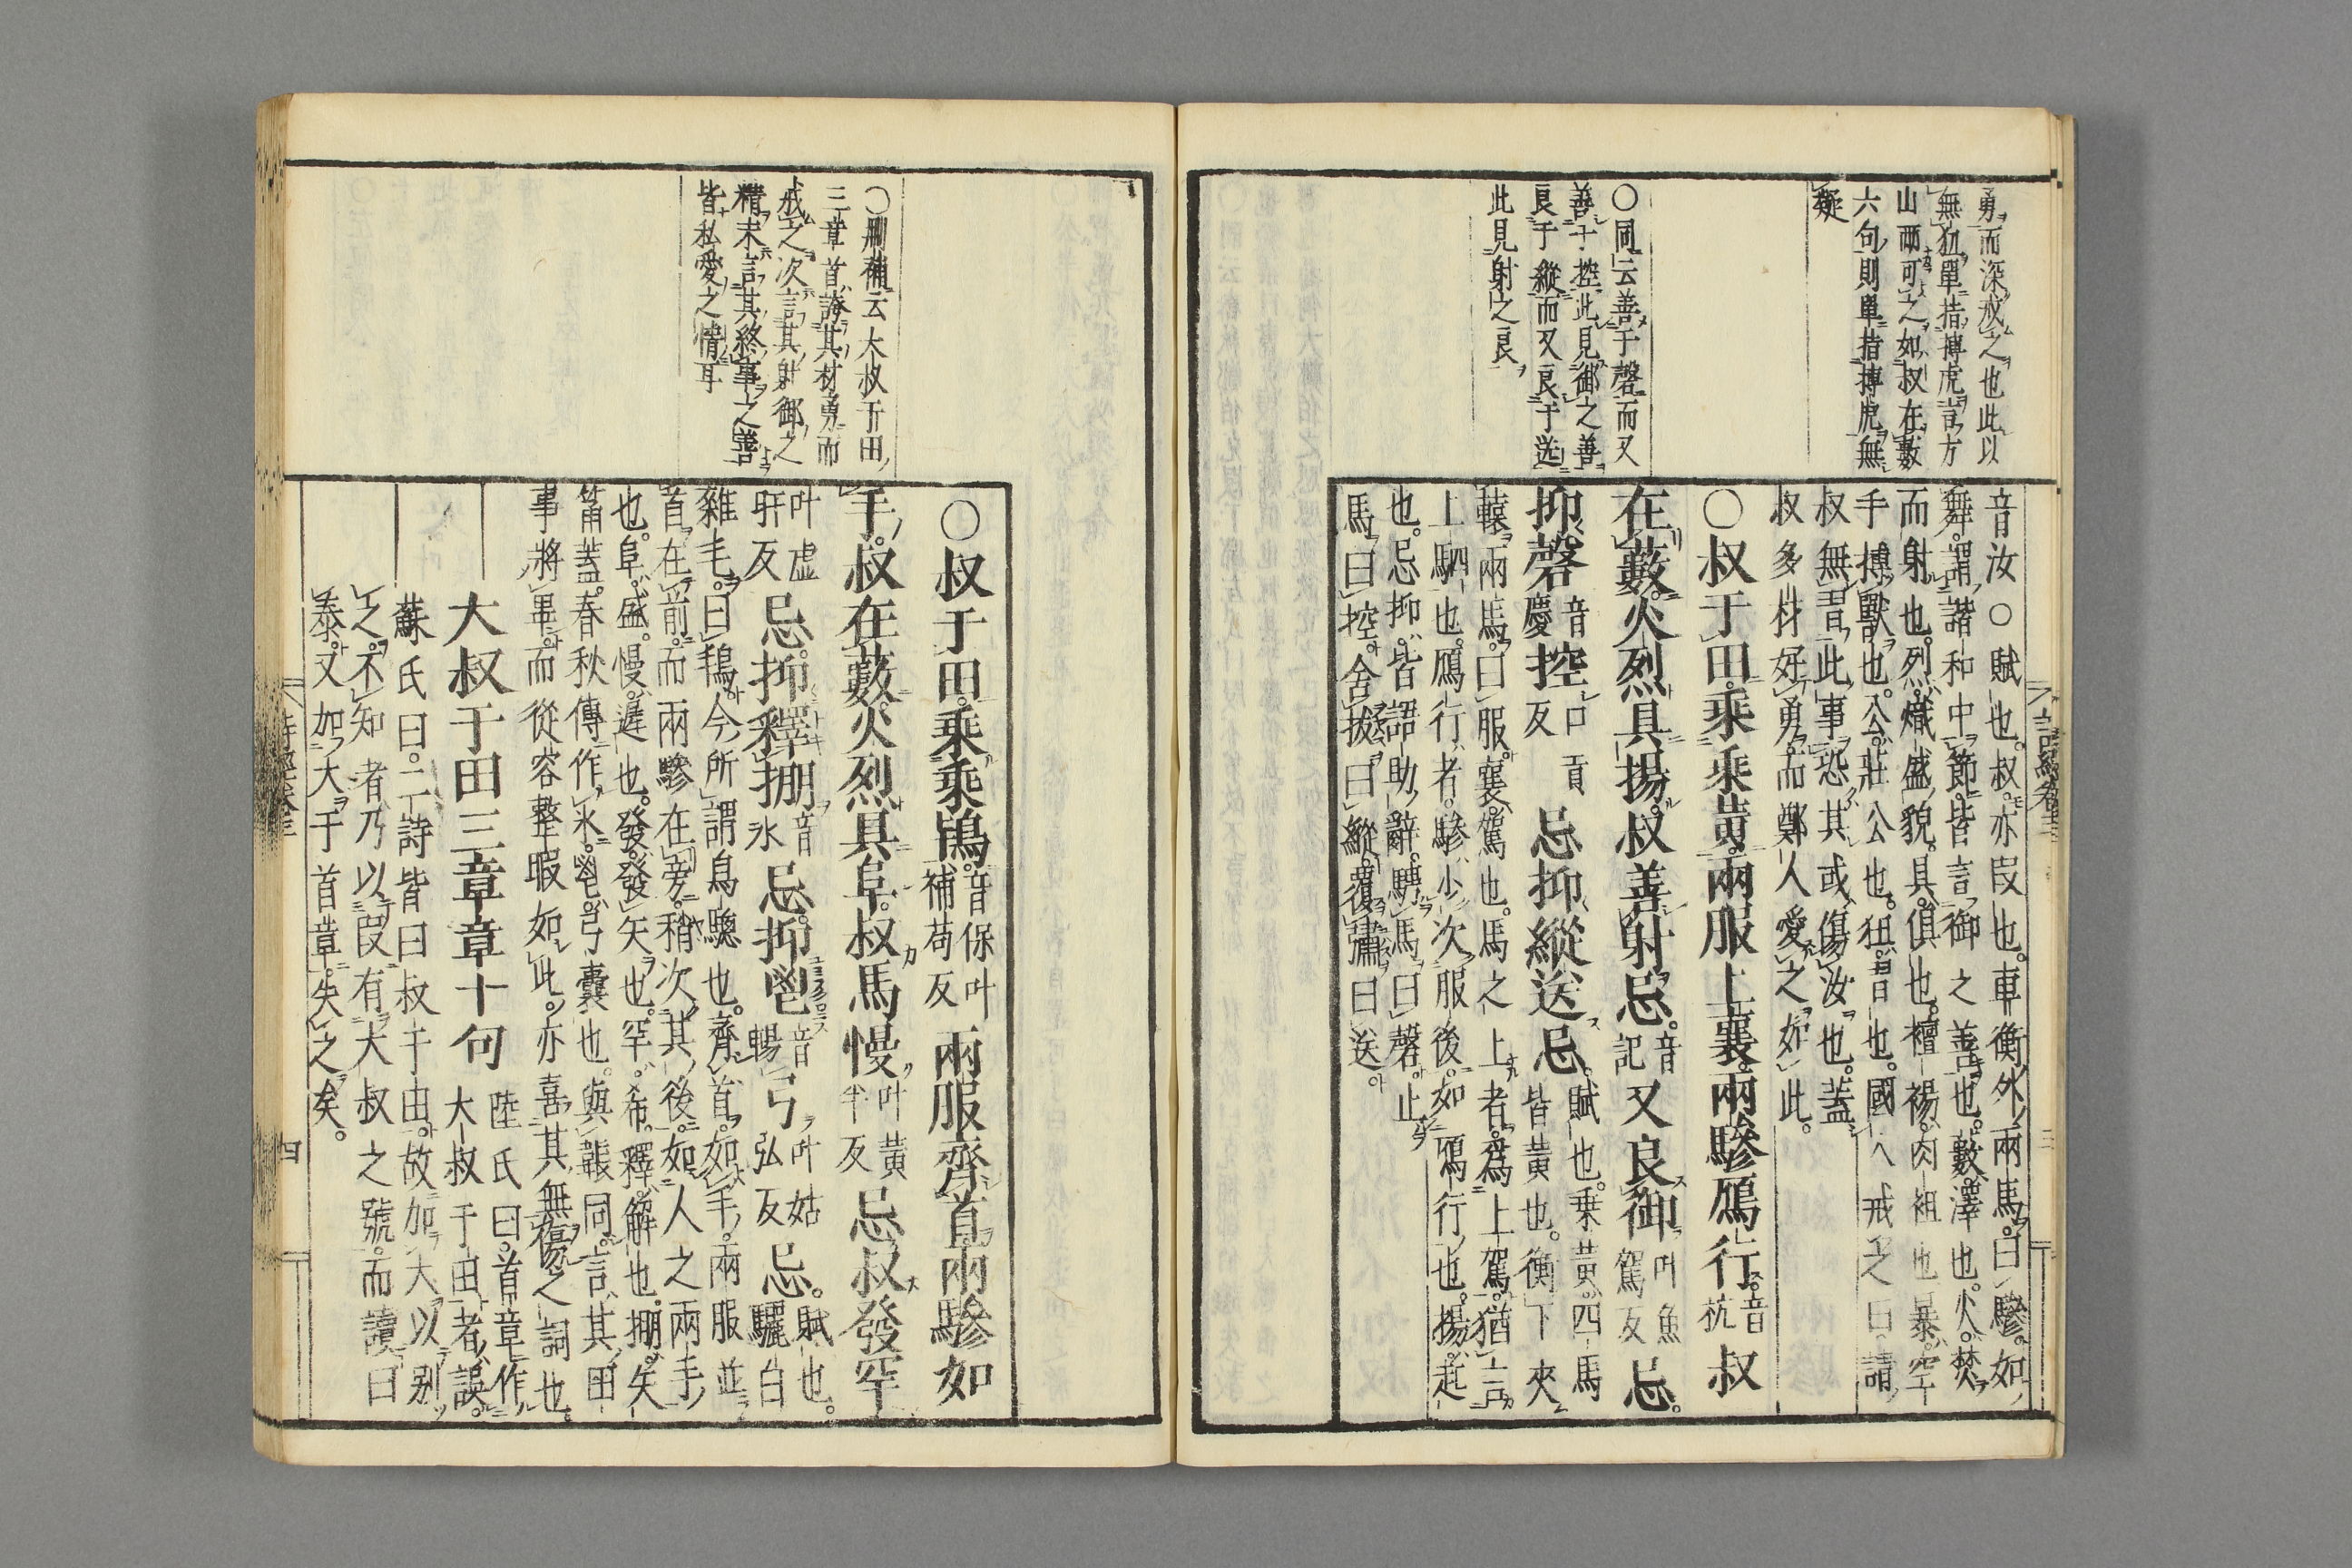 勇而深戒之也此以
無狃單指搏虎言方
山両可之如叔在藪
六句則單指搏虎無
疑
○同云善于磬而又
善于控此見御之善
良于縱而又良于送
此見射之良
音汝○賦也。叔亦段也。車衡外兩馬曰驂。如
舞。謂諧和中節。皆言御之善也。藪。澤也。火。焚
而射也。烈。熾盛貌。具。俱也。襢裼。肉袒也暴。空
手搏獸也。公。莊公也。狃。習也。國人戒之曰。請
叔無習此事。恐其或傷汝也。蓋
叔多材好勇。而鄭人愛之如此。
○叔于田。乘乘黃。兩服上襄。兩驂鴈行。音杭叔
在藪。火烈具揚。叔善射忌。音記又良御叶魚駕反忌。
抑磬音慶控口貢反忌抑縱送忌。賦也。乘黃。四馬皆黃也。衡下夾
轅兩馬。曰服。襄。駕也。馬之上者。為上駕。猶言
上駟也。鴈行者。驂少次服後。如鴈行也。揚。起
也。忌抑。皆語助辭。騁馬曰磬。止
馬曰控。舍拔曰縱。覆彇曰送。
詩經卷三
三
○刪補云大叔于田
三章首誇其材勇而
戒之次言其射御之
精末言其終事之善
皆私愛之情耳
○叔于田。乘乘鴇。音保叶補苟反兩服齊首。兩驂如
手。叔在藪。火烈具阜。叔馬慢叶黃半反忌叔發罕
叶虛旰反忌。抑釋掤音氷忌。抑鬯音暢弓叶姑弘反忌。賦也。驪白
雜毛。曰鴇。今所謂烏驄也。齊首。如手。兩服並
首在前。而兩驂在旁。稍次其後。如人之兩手
也。阜。盛。慢。遲也。發。發矢也。罕。希。釋。解也。掤。矢
筩蓋。春秋傳作氷。鬯。弓囊也。與韔同。言其田
事將畢。而從容整暇如此。亦喜其無傷之詞也。
大叔于田三章章十句陸氏曰。首章作大叔于田者。誤。
蘇氏曰。二詩皆曰叔于田。故加大以别
之。不知者乃以段有大叔之號。而讀曰
泰。又加大于首章。失之矣。
詩經卷三
四